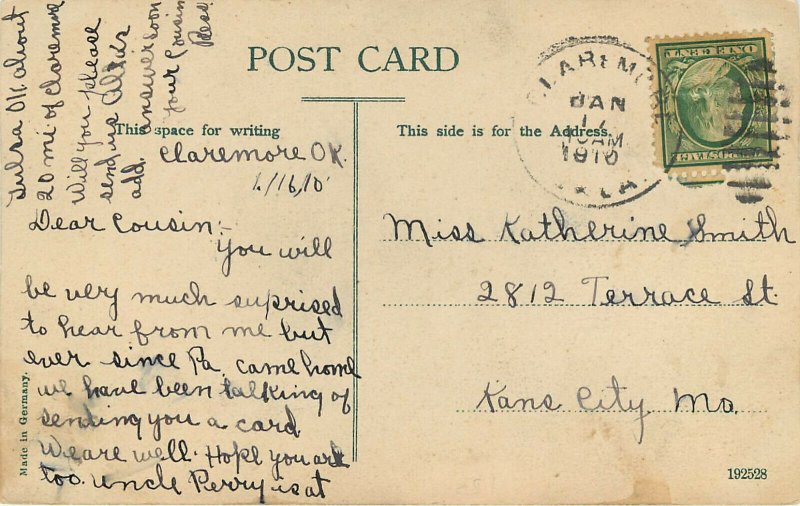 POST CARD
This space for writing
This side is for the Address.
Claremore OK.
1/16,10
Dear Cousin:-
You will
be very much suprised
to hear from me but
ever since Pa. came home
we have been talking of
sending you a card
We are well. Hope you are
too. Uncle Perry is at
Tulsa OK about
20 mi of Claremore
Will you please
send us
add. answer soon
your Cousin
Miss Katherine Smith
2812 Terrace St.
Kans City Mo.
CLAREMORE
JAN
17
10 AM
1910
OKLA.
Made in Germany.
192528